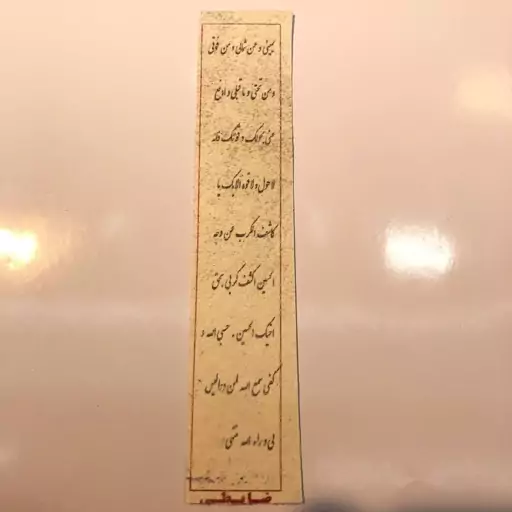 یمینی و عن شمالی و من فوقی
و من تحتی و ما قبلی و ادفع
عنی بحولک و قوتک فانه
لاحول و لا قوة الا بک یا
کاشف الکرب عن وجه
الحسین اکشف کربی بحق
اخیک الحسین . حسبی الله و
کفی سمع الله لمن دعا لیس
لی وراء الله منتهی